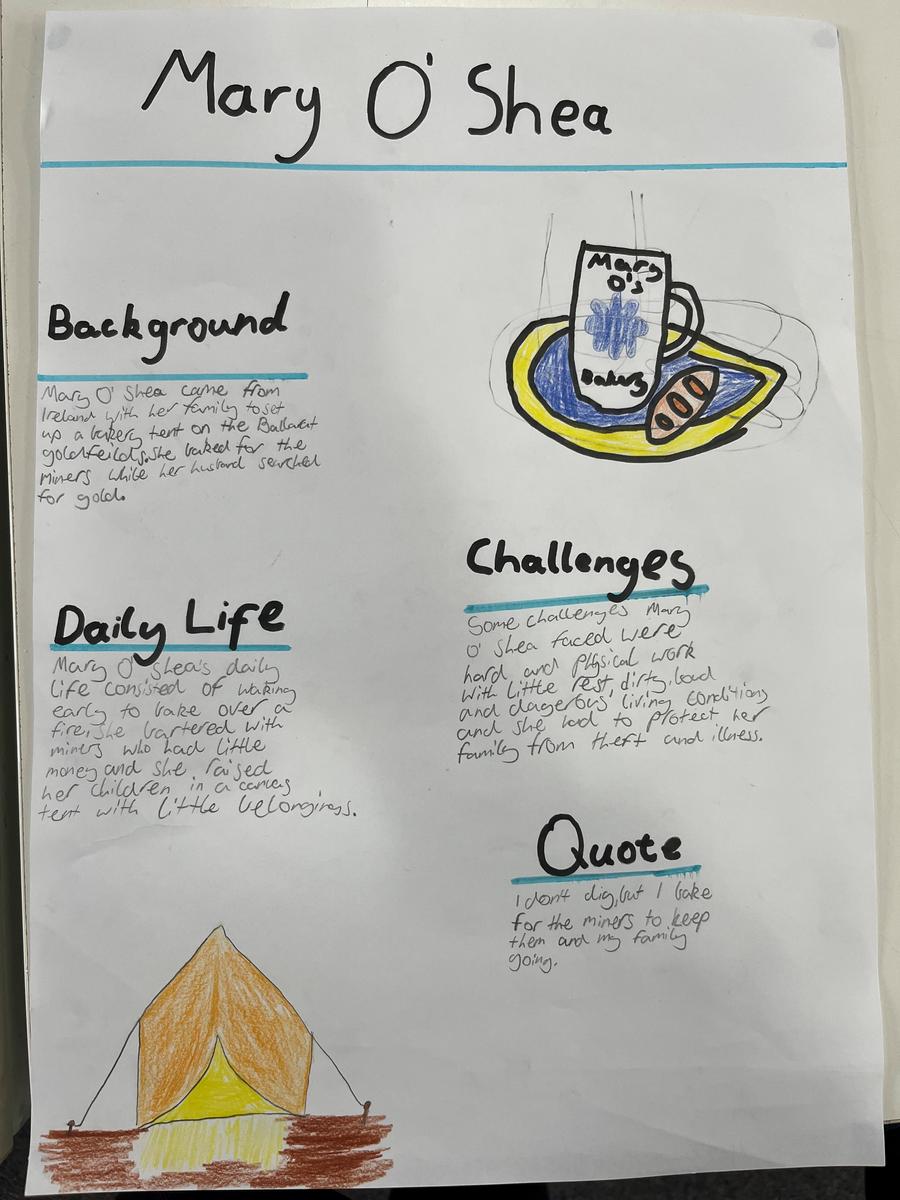 Mary O'Shea
Mary
O's
Bakery
Background
Mary O' Shea came from
Ireland with her family to set
up a bakery tent on the Ballarat
goldfeilds. She baked for the
miners while her husband searched
for gold.
Challenges
Some challenges Mary
O' Shea faced were
hard and physical work
with little rest, dirty, loud
and dangerous, living conditions
and she had to protect her
family from theft and illness.
Daily Life
Mary O' Shea's daily
life consisted of waking
early to bake over a
fire, she bartered with
miners who had little
money and she raised
her children in a canvas
tent with little belongings.
Quote
I don't dig, but I bake
for the miners to keep
them and my family
going.